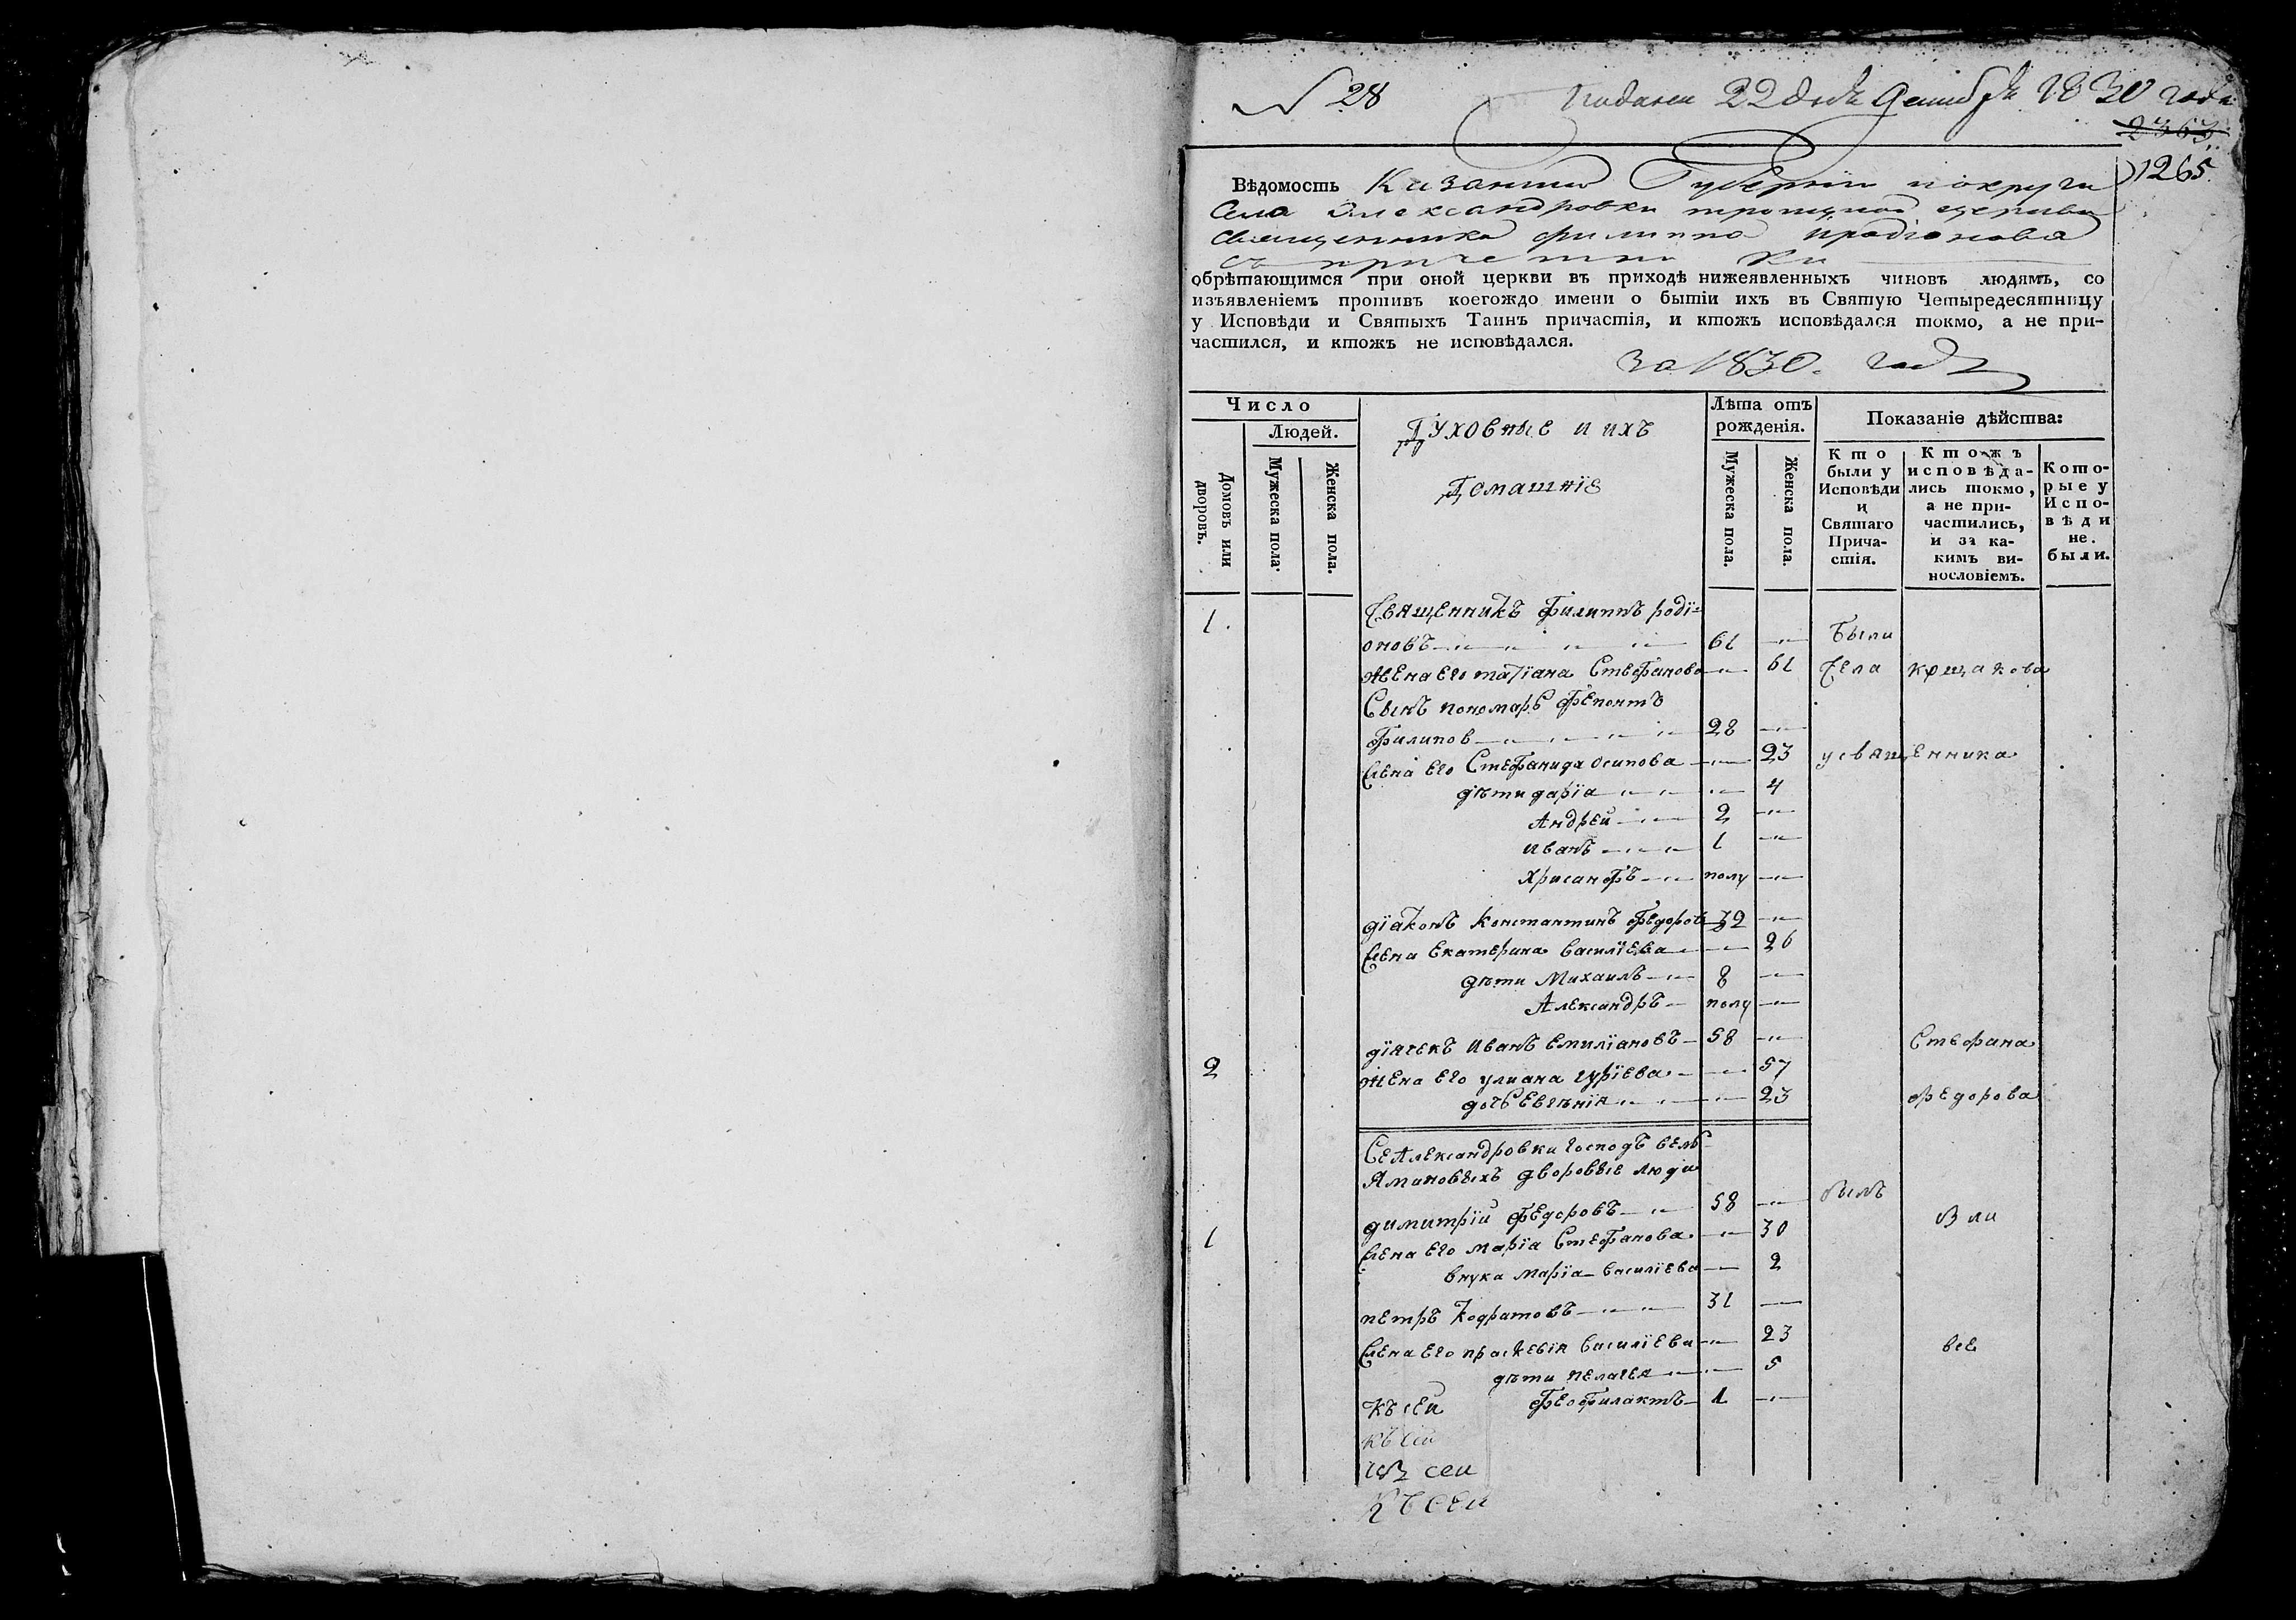 № 28
Подана 22 Декабря 1830 года
2363
1265
Вѣдомость Казанской Губернии и округи
села Александровки троицкой церкви
священника филиппа иродїонова
съ причетники
обрѣтающимся при оной церкви въ приходѣ нижеявленныхъ чиновъ людямъ, со
изъявленіемъ противъ коегождо имени о бытіи ихъ въ Святую Четыредесятницу
у Исповѣди и Святыхъ Таинъ причастія, и ктожъ исповѣдался токмо, а не при-
частился, и ктожъ не исповѣдался.
за 1830. годъ
Число
Людей.
Домовъ или дворовъ.
Мужеска пола.
Женска пола.
Духовные и ихъ
Домашнїе
Лѣта отъ рожденія.
Мужеска пола.
Женска пола.
Показаніе дѣйства:
Кто были у Исповѣди и Святаго Прича-стія.
Ктожъ исповѣда-лись токмо, а не при-частились, и за ка-кимъ ви-нословіемъ.
Кото-рые у Испо-вѣди не были.
1. Священникъ Филиппъ родї-
оновъ 61 были
жена его татїана Стефанова 61 села кощакова
Сынъ пономарь Ферапонтъ
Филипов 28
жена его Стефанида осипова 23 у священника
дѣти дарїа 4
Андрей 2
иванъ 1
Хрисанфъ полу
дїаконъ Константинъ Федоровъ 32
жена Екатерина василїева 26
дѣти Михаилъ 8
Александръ полу
дїячекъ иванъ емилїановъ 58 Стефана
2 жена его улиана гурїева 57
дочь Евгѣнїя 23 федорова
Се Александровки господъ вель-
Яминовыхъ дворовые люди
димитрїй Федоровъ 58 былъ
1 жена его марїа Стефанова 30
внука марїа василїева 2
петръ Кодратовъ 31
жена его праскевїя василїева 23 все
дѣти пелагея 5
Къ сей Феофилактъ 1
къ сей
сей
Къ сей